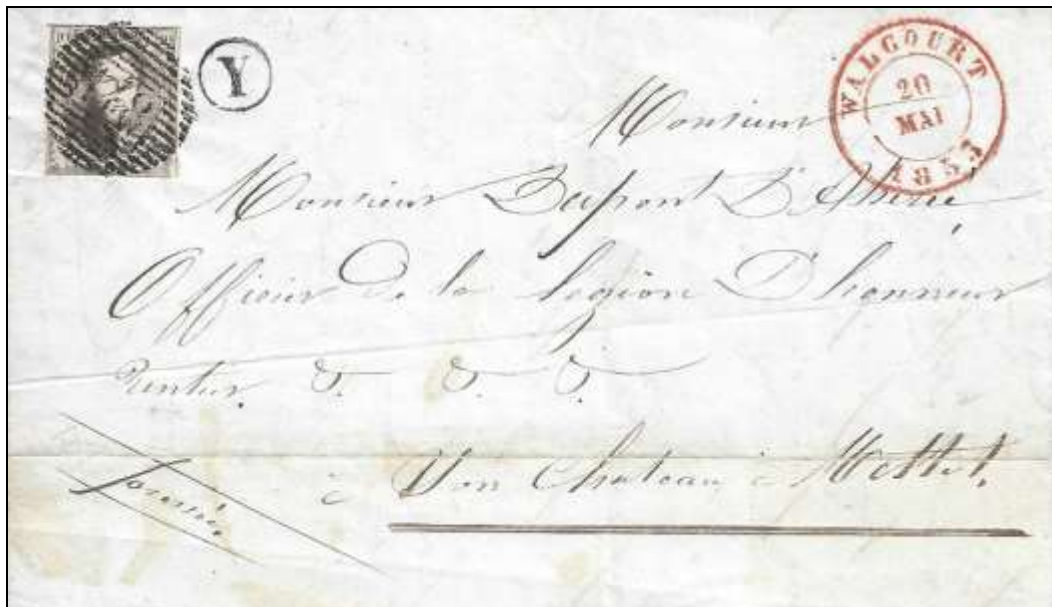 Y
WALCOURT
20
MAI
1853
Monsieur
Monsieur Dupont D'
Officier de la Legion D'honneur
Rentier &. &. &.
à Son Chateau à Mettet.